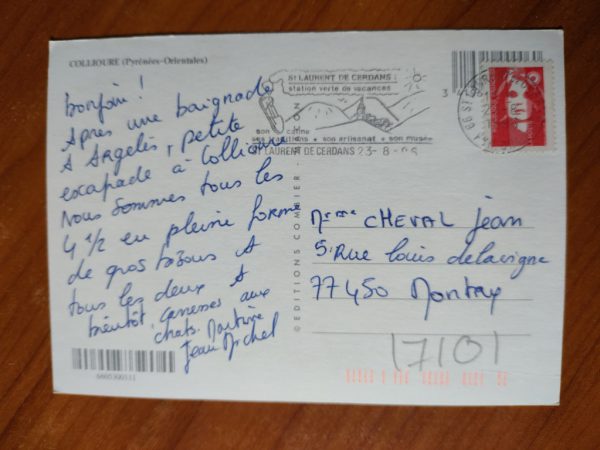 COLLIOURE (Pyrénées-Orientales)
bonjour!
Apres une baignade
A Argelès, petite
escapade à Collioure
Nous sommes tous les
4 1/2 en pleine forme
de gros bisous A
tous les deux A
bientôt. caresses aux
chats.
Jean Michel
6660300111
©EDITIONS COMBIER - MACON
ST LAURENT DE CERDANS :
station verte de vacances
son calme
ses traditions * son artisanat * son musée
ST LAURENT DE CERDANS 23-8-
3
66 ST
CHEVAL Jean
5 Rue louis delavigne
77450 Montry
17101